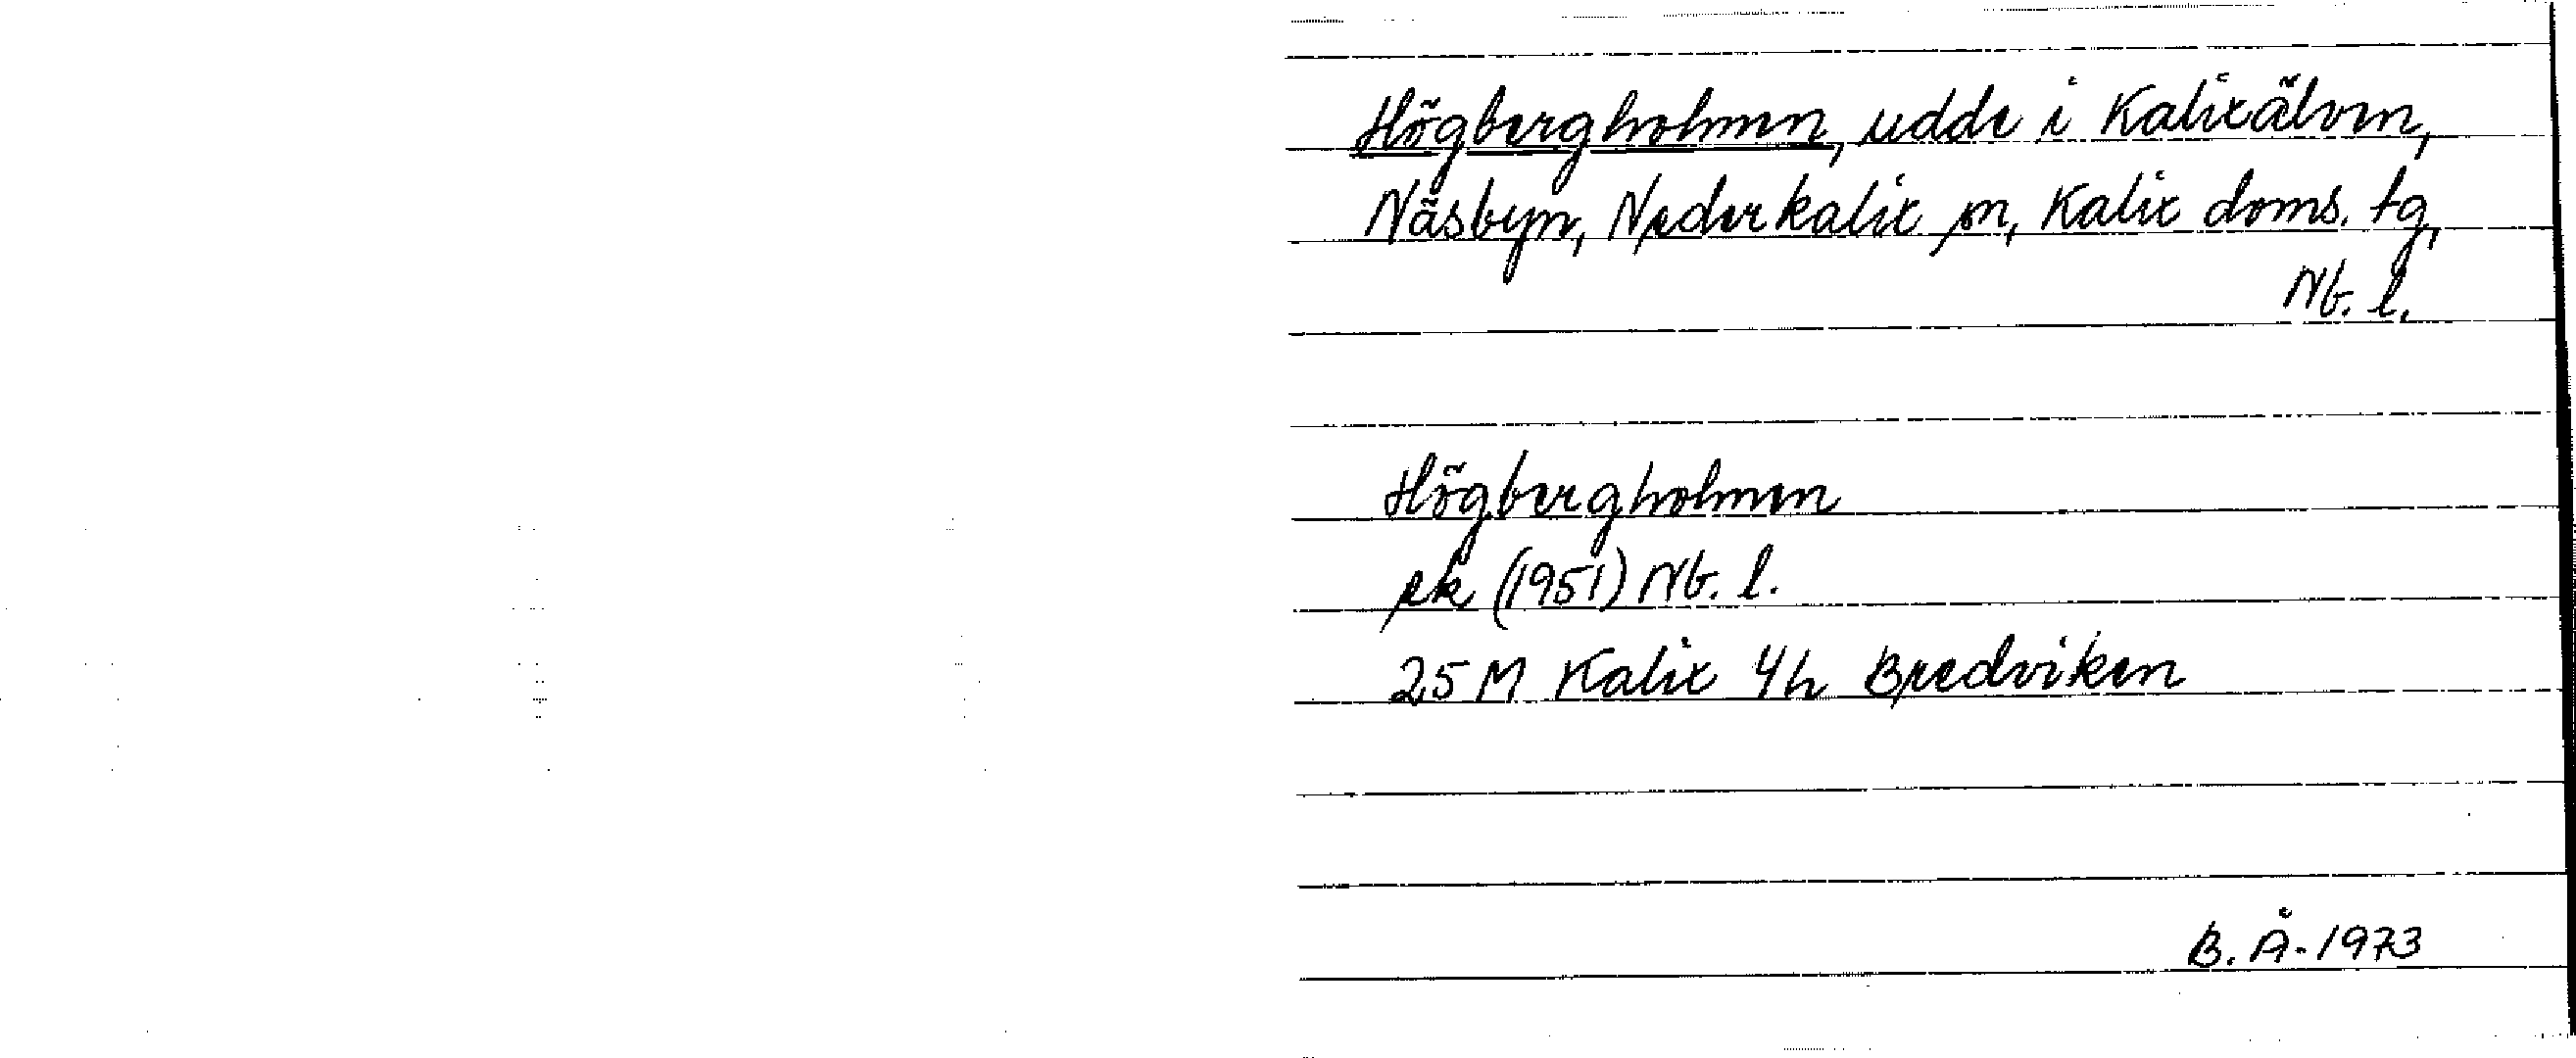 Högbergholmen, udde i Kalixälven,
Näsbyn, Nederkalix sn, Kalix doms. tg,
Nb. l.
Högbergholmen
ek (1951) Nb. l.
25 M Kalix 4h Bredviken
B. Å. 1973